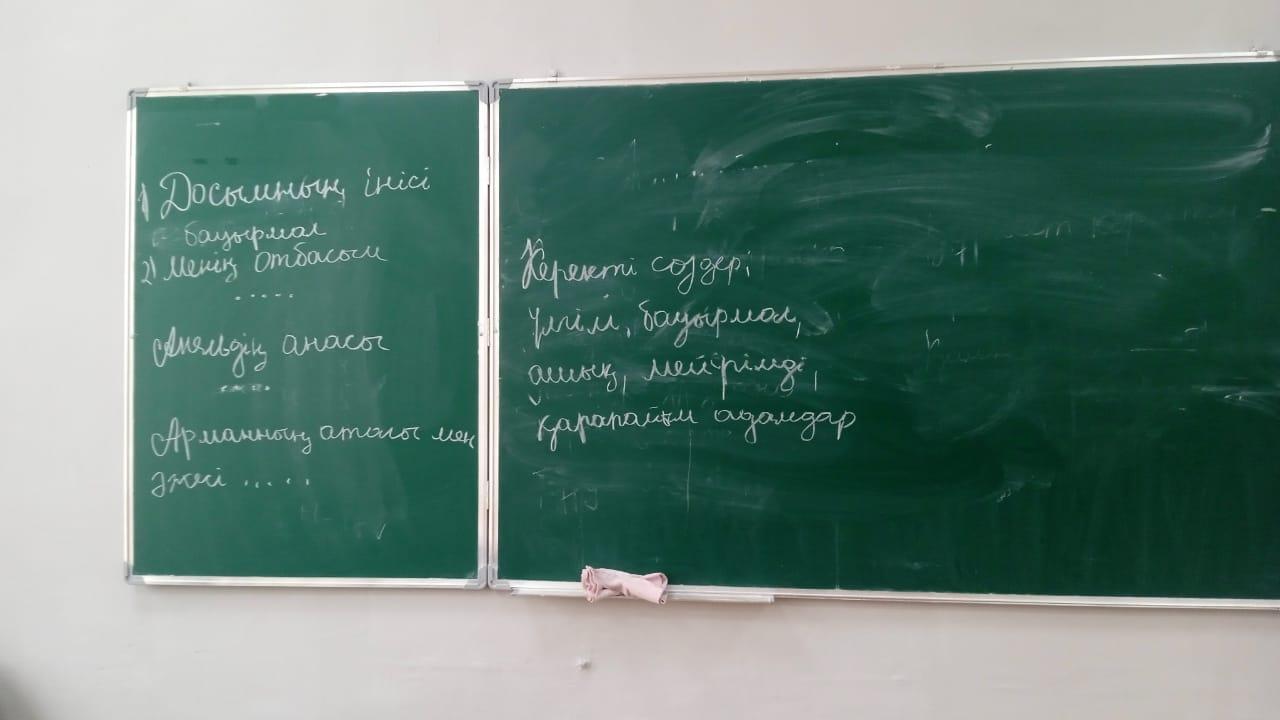 1) Досымның інісі
бауырмал
2) Менің отбасым
.....
Анельдің анасы
.....
Арманның атасы мен
әжесі .....
Керекті сөздер:
Үлгілі, бауырмал,
ашық, мейірімді,
қарапайым адамдар